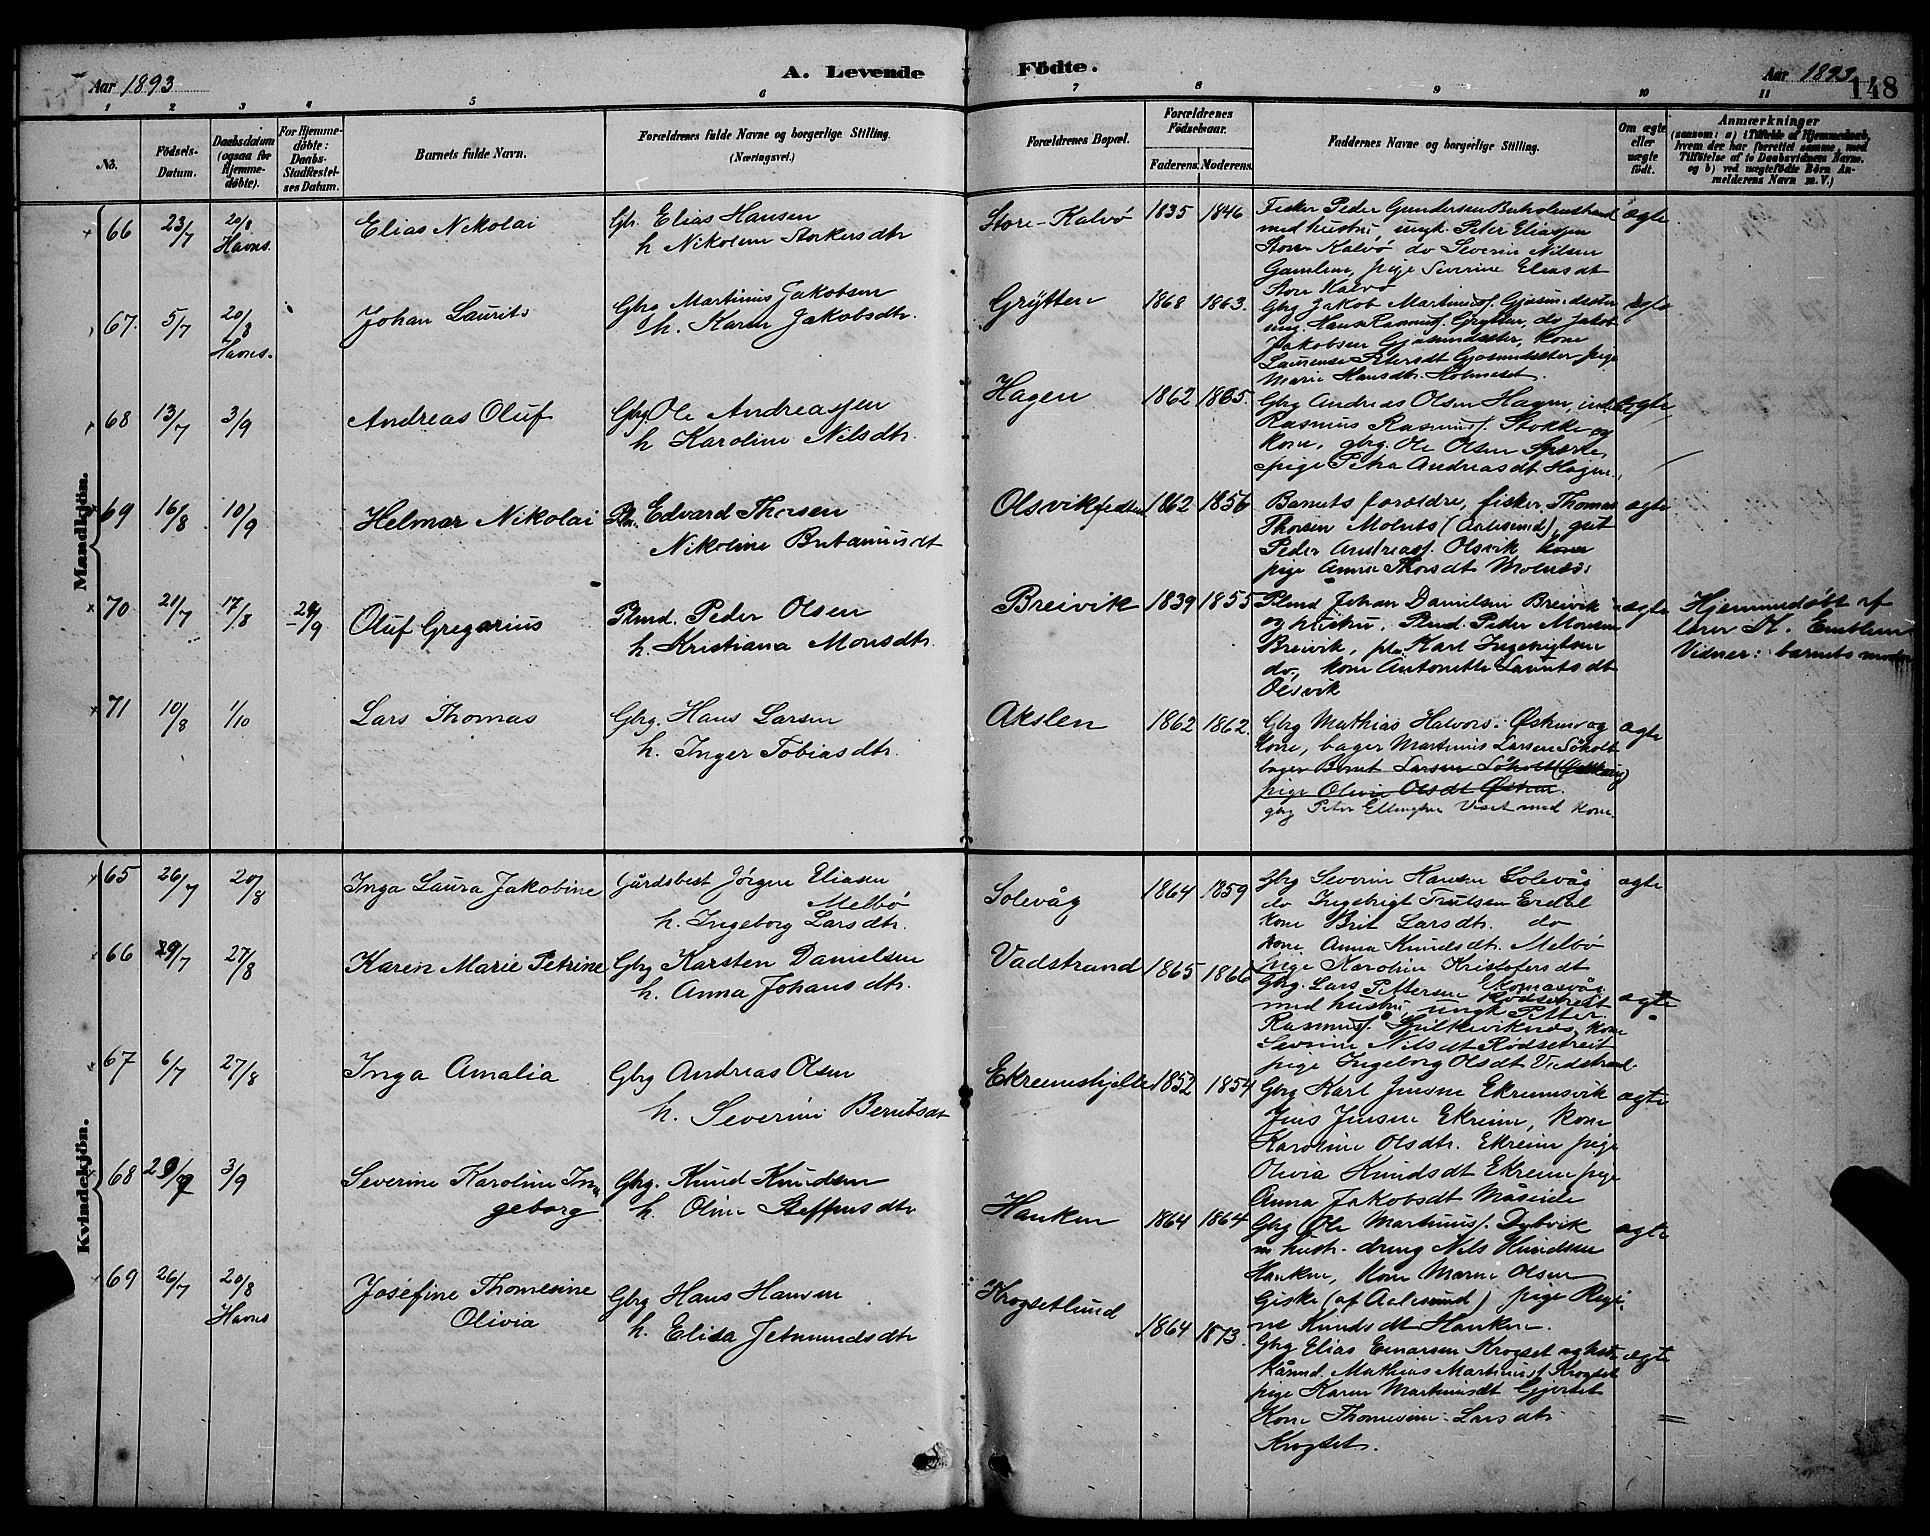 Aar 1893
A. Levende
Födte.
Aar 1893
148
1 2 3 4 5 6 7 8 9 10 11
No.
Födsels-
Datum.
Daabsdatum
(ogsaa for
Hjemme-
døbte).
For Hjemme-
døbte:
Daabs-
Stadfæstel-
ses Datum.
Barnets fulde Navn.
Forældrenes fulde Navne og borgerlige Stilling.
(Næringsvei.)
Forældrenes Bopæl.
Forældrenes
Fødselsaar.
Faderens. Moderens.
Faddernes Navne og borgerlige Stilling.
Om ægte
eller
uægte
født.
Anmærkninger
(saasom: a) i Tilfælde af Hjemmedaab,
hvem der har forrettet samme, med
Tilføielse af to Daabsvidners Navne,
og b) ved uægtefødte Børn An-
melderens Navn m. V.)
Mandkjön.
66 23/7 20/8 Elias Nikolai Gbr. Elias Hansen Store-Kalvö 1835 1846 Fisker Peder Gundersen ægte
Havns. h Nikoline med hustru ungk. Peter Eliassen
Store Kalvö do Severin Nilsen
Gamlem, pige Severine Eliasdt
Store Kalvö
67. 5/7 20/8 Johan Laurits Gbrg Martinus Jakobsen Grytten 1868 1863. Gbrg Jakob Martinuss. ægte
Havns. h. Karen Jakobsdtr. ung. Hans Rasmuss. Grytten, do Jakob
Jakobsen Gjosundsæter, kone
Laurense Petersdt Gjosundsæter pige
Marie Hansdtr. Holmeset.
68 13/7 3/9 Andreas Oluf Gbrg Ole Andreassen Hagen 1862 1865. Gbrg Andreas Olsen Hagen, ægte
h Karoline Nilsdtr. Rasmus Rasmuss. Stokke og
kone, gbrg. Ole Olsen
pige Petra Andreasdt Hagen.
69 16/8 10/9 Helmar Nikolai Edvard Thorsen 1862 1856 Barnets forældre, fisker Thomas ægte
Nikoline Thorsen Molnes (Aalesund), gut
Peder Andreass. Olsvik kone
pige Anna Thorsdt Molnes.
70 21/7 17/8 24/9 Oluf Gregorius Plmd. Peder Olsen Breivik 1839 1855 Plmd Johan Danielsen Breivik ægte Hjemmedöbt af
h. Kristiana Monsdtr. og hustru. Plmd. Peder Monsen lærer K. Emblem
Breivik, Karl Ingebrigtsen Vidner: barnets
do, kone Antonette Lauritsdt
Olsvik
71 10/8 1/10 Lars Thomas Gbrg. Hans Larsen Akslen 1862 1862. Gbrg Mathias Halvors. og ægte
h. Inger Tobiasdtr. kone, bager Martinus Larsen Söholt
bager Bernt Larsen Söholt
pige Oline Olsdt
gbrg Peter Ellingsen med kone.
Kvindekjön.
65 26/7 20/8 Inga Laura Jakobine Gårdsbest Jörgen Eliasen Solevåg 1864 1859 Gbrg Severin Hansen Solevåg ægte
Melbö do Ingebrigt Erdal
h. Ingeborg Larsdtr. kone Brit Larsdtr. do
kone Anna Knudsdtr. Melbö
pige Karoline Kristofersdt
66 29/7 27/8 Karen Marie Petrine Gbrg Karsten Danielsen Vadstrand 1865 1866 Gbrg. Lars Pettersen ægte
h. Anna Johansdtr. med hustru, ungk Petter
Rasmuss. Spilkeviknes, kone
Severine Nilsdt Rödsetreit
pige Ingeborg Olsdt Vadstrand
67 6/7 27/8 Inga Amalia Gbrg Andreas Olsen 1852 1854 Gbrg Karl Jensen Ekremsvik ægte
h. Severine Berntsdt Jens Jensen Ekreim, kone
Karoline Olsdtr. Ekreim pige
Olivia Knudsdt Ekreim pige
Anna Jakobsdt
68 3/9 Severine Karoline In- Gbrg. Knud Knudsen Hanken 1864 1864 Gbrg Ole Martinuss. Dybvik ægte
geborg h. Oline Steffensdtr m hustr. dreng Nils Knudsen
Hanken, kone Olsen
Giske (af Aalesund) pige Regi-
ne Knudsdt Hanken.
69 26/7 20/8 Josefine Thomesine Gbrg Hans Hansen Krogsetlund 1864 1873. Gbrg Elias Krogset ægte
Havns Olivia h. Elisa Jetmundsdtr Mathias Martinuss. Krogset
pige Karen Martinusdt
Kone Thomesine Larsdtr
Krogset.